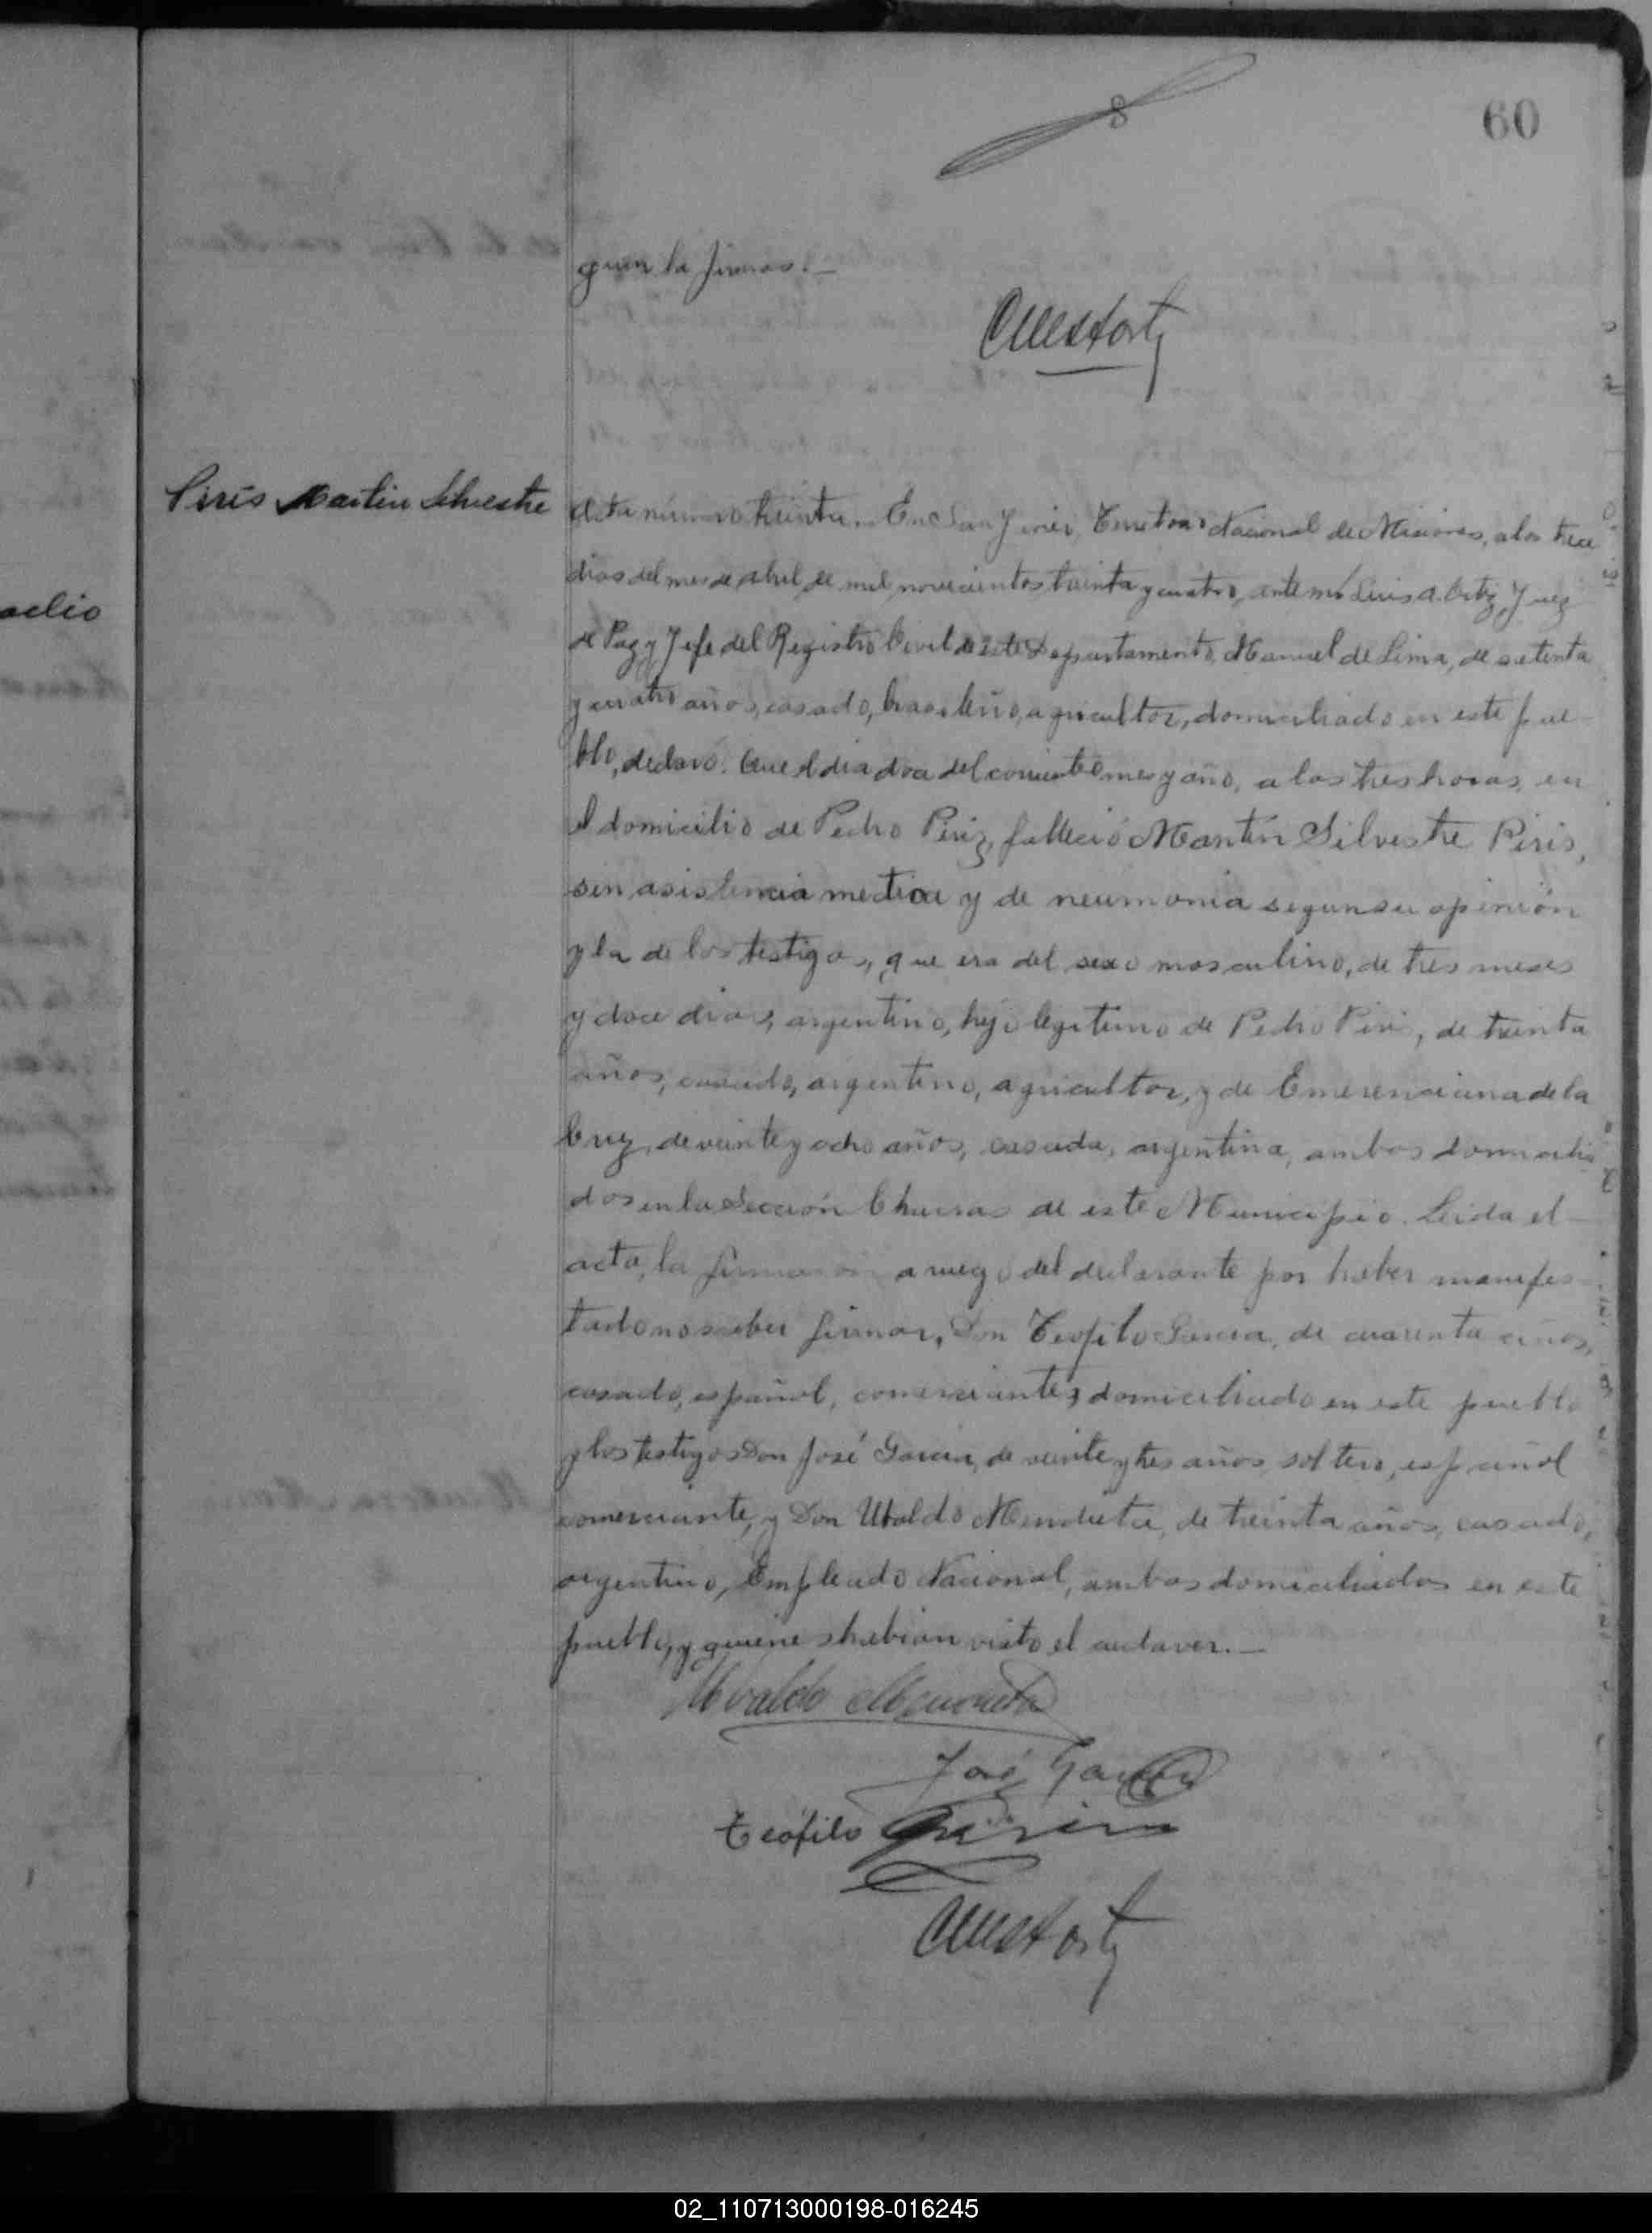 60
quien la firmas.—
Piris Martin Silvestre
Acta número treinta.— En San Javier, Territorio Nacional de Misiones, a los trece
dias del mes de abril de mil novecientos treinta y cuatro, ante mi Luis A. Ortiz, Juez
de Paz y Jefe del Registro Civil de este Departamento, Manuel de Lima, de setenta
y cuatro años, casado, brasileño, agricultor, domiciliado en este pue-
blo, declaró: Que el dia doce del corriente mes y año, a las tres horas, en
el domicilio de Pedro Piriz, falleció Martín Silvestre Piris,
sin asistencia medica y de neumonia segun su opinión
y la de los testigos, que era del sexo masculino, de tres meses
y doce dias, argentino, hijo legitimo de Pedro Piris, de treinta
años, casado, argentino, agricultor, y de Emerenciana de la
Cruz, de veinte y ocho años, casada, argentina, ambos domicilia
dos en la Sección de este Municipio. Leida el
acta, la firmaron a ruego del declarante por haber manifes-
tado no saber firmar, Don Teofilo Garcia, de cuarenta años,
casado, español, comerciante, domiciliado en este pueblo
y los testigos Don José Garcia, de veinte y tres años, soltero, español
comerciante, y Don Ubaldo Mendieta, de treinta años, casado,
argentino, Empleado Nacional, ambos domiciliados en este
pueblo, y quienes habian visto el cadaver.—
Uvaldo Mendieta
José Garcia
Teófilo Garcia
adio
02_110713000198-016245